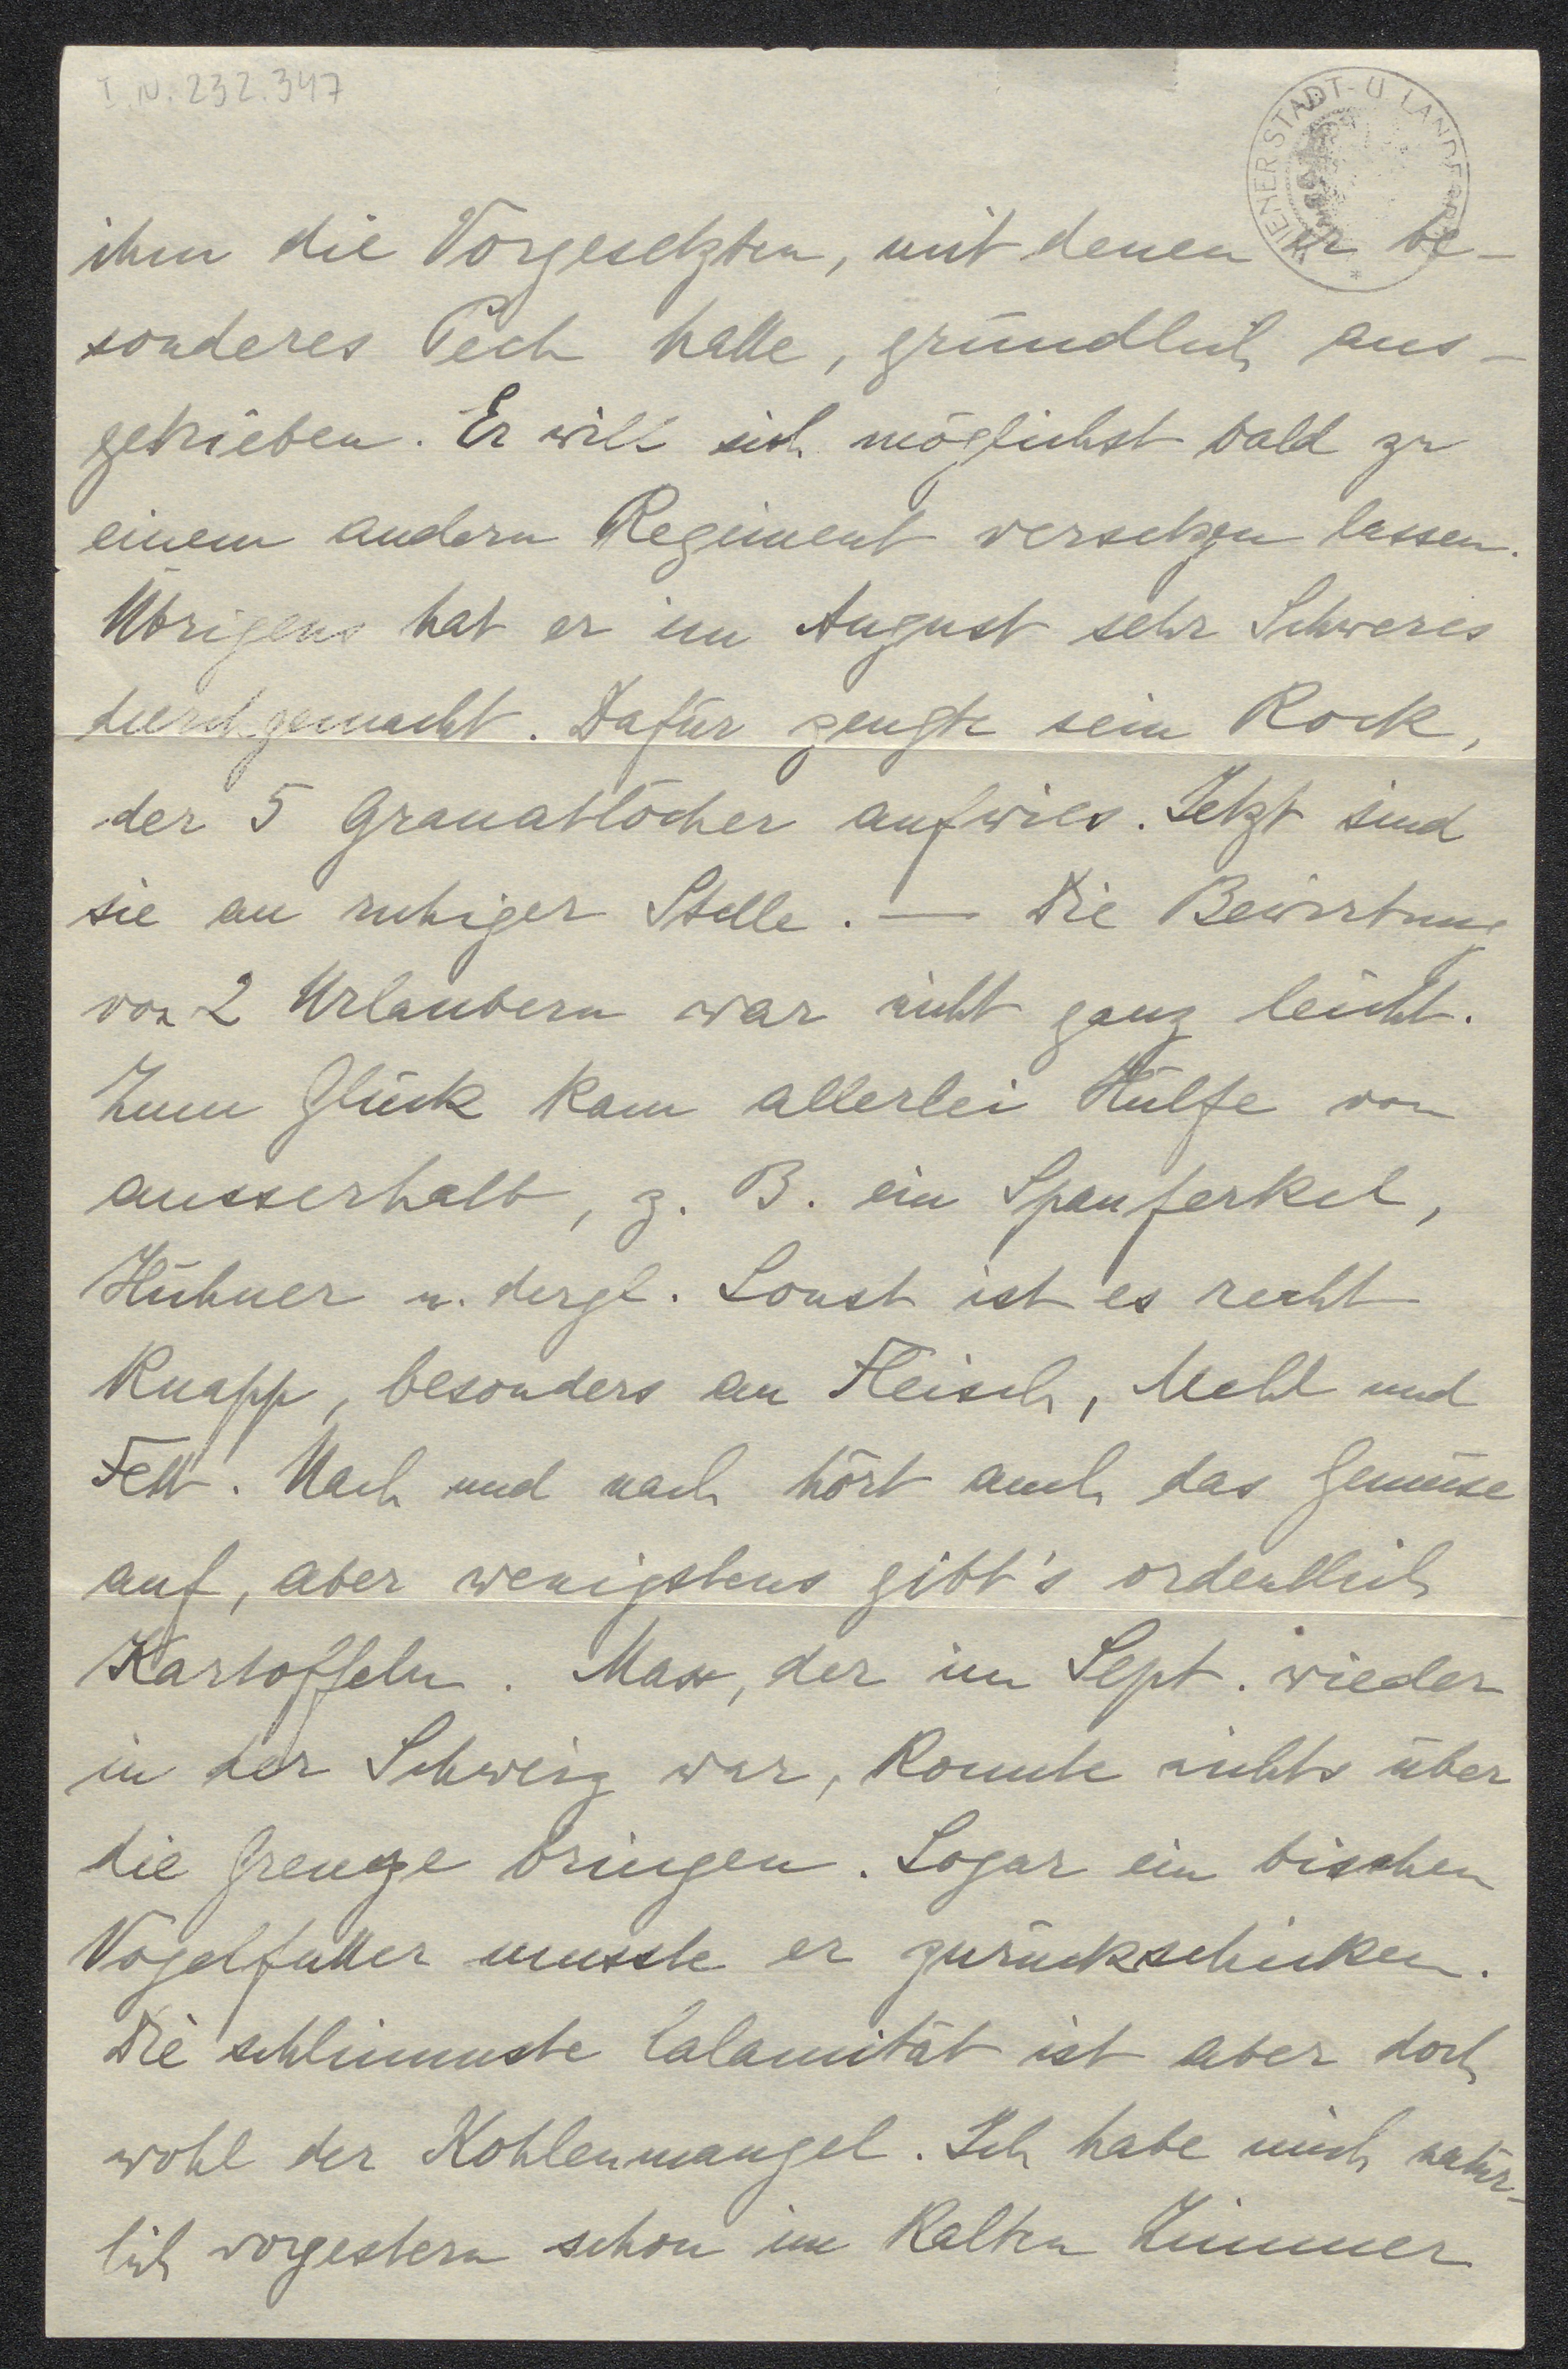 I.N. 232.347
WIENER STADT- U. LANDES
ihm die Vorgesetzten, mit denen er be-
sonderes Pech hatte, gründlich aus-
getrieben. Er will sich möglichst bald zu
einem andern Regiment versetzen lassen.
Übrigens hat er im August sehr Schweres
durchgemacht. Dafür zeugte sein Rock,
der 5 Granatlöcher aufwies. Jetzt sind
sie an ruhiger Stelle. — Die Bewirtung
von 2 Urlaubern war nicht ganz leicht.
Zum Glück kam allerlei Hülfe von
ausserhalb, z. B. ein Spanferkel,
Hühner u. dergl. Sonst ist es recht
knapp, besonders an Fleisch, Mehl und
Fett. Nach und nach hört auch das Gemüse
auf, aber wenigstens gibt's ordentlich
Kartoffeln. Max, der im Sept. wieder
in der Schweiz war, konnte nichts über
die Grenze bringen. Sogar ein bischen
Vogelfutter musste er zurückschicken.
Die schlimmste Calamität ist aber doch
wohl der Kohlenmangel. Ich habe mich natür-
lich vorgestern schon im kalten Zimmer